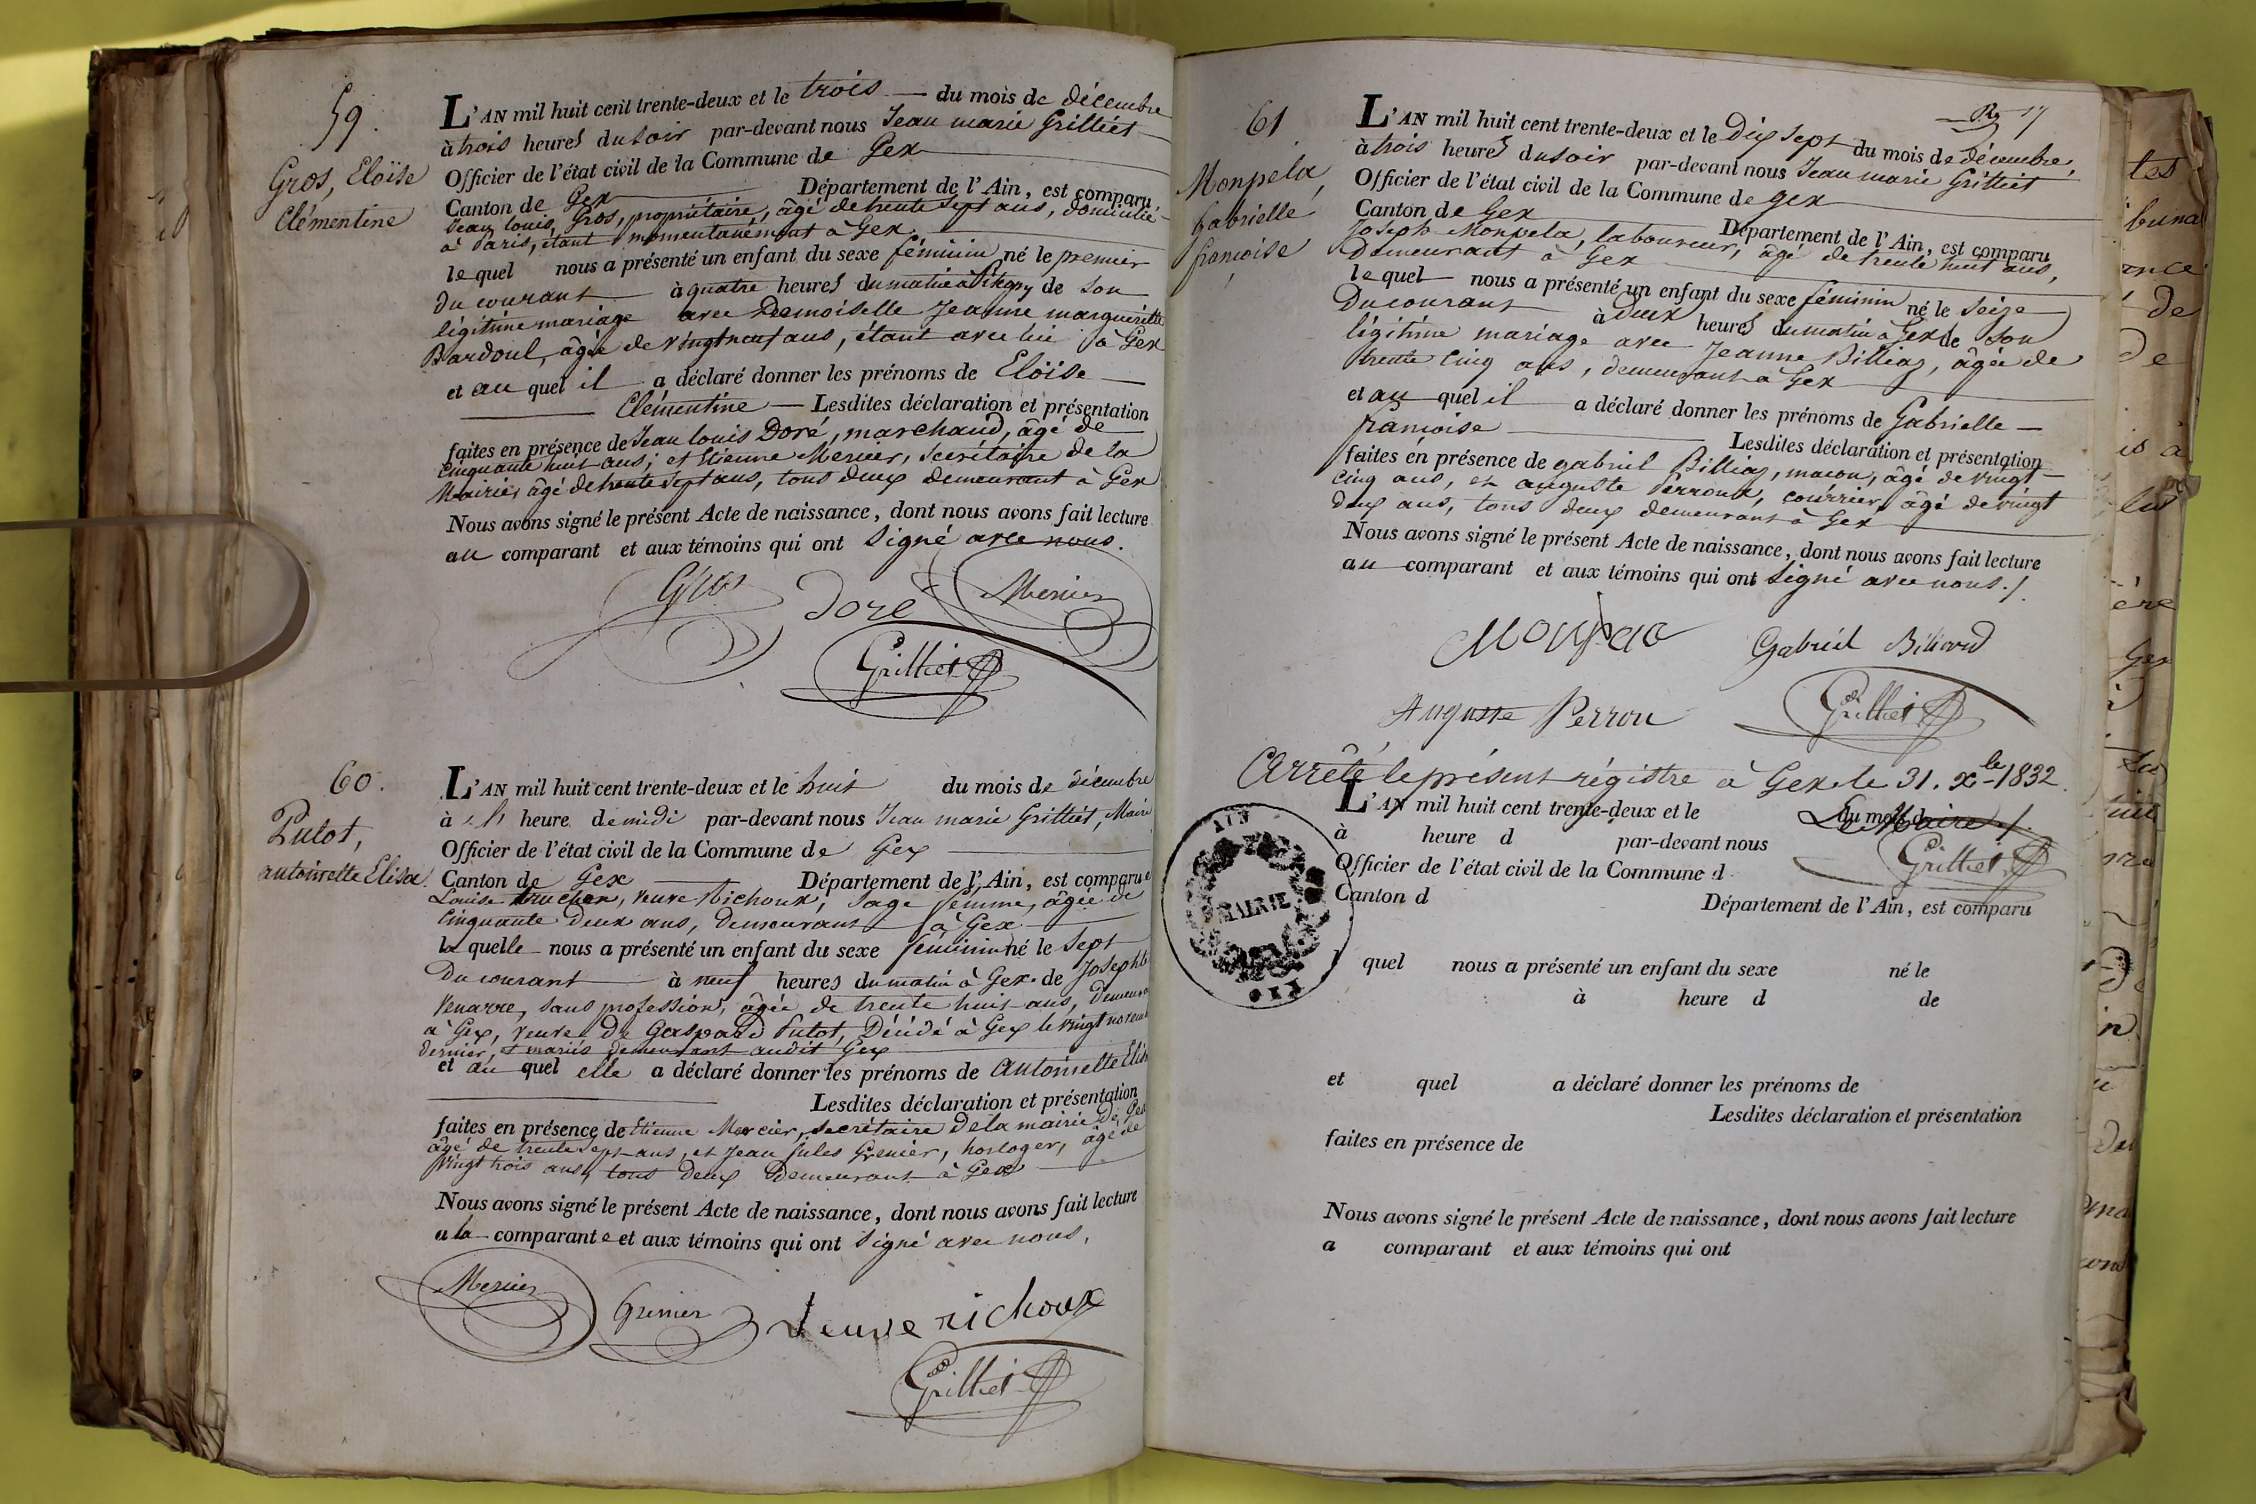 59.
Gros, Eloïse
Clémentine
L'AN mil huit cent trente-deux et le trois du mois de décembre
à trois heures du soir par-devant nous Jean marie Grilliet
Officier de l'état civil de la Commune de Gex
Canton de Gex Département de l'Ain, est comparu
Jean louis Gros, propriétaire, âgé de trente sept ans, domicilié
à Paris, étant momentanément à Gex
le quel nous a présenté un enfant du sexe féminin né le premier
du courant à quatre heures du matin à de son
légitime mariage avec Demoiselle Jeanne margueritte
Bardoul, âgée de vingt neuf ans, étant avec lui à Gex
et au quel il a déclaré donner les prénoms de Eloïse
Clémentine Lesdites déclaration et présentation
faites en présence de Jean louis Doré, marchand, âgé de
cinquante huit ans; et Etienne Mercier, secrétaire de la
Mairie, âgé de trente sept ans, tous deux demeurant à Gex
Nous avons signé le présent Acte de naissance, dont nous avons fait lecture
au comparant et aux témoins qui ont Signé avec nous.
Gros Doré Mercier
Grilliet
60.
Putot,
antoinette Elisa.
L'AN mil huit cent trente-deux et le huit du mois de décembre
à heure de midi par-devant nous Jean marie Grilliet, Maire
Officier de l'état civil de la Commune de Gex
Canton de Gex Département de l'Ain, est comparue
Louise veuve Richoux, sage femme, âgée de
cinquante deux ans, demeurant à Gex
la quelle nous a présenté un enfant du sexe féminin né le sept
du courant à neuf heures du matin à Gex de Josephte
Venarre, sans profession, âgée de trente huit ans,
à Gex, veuve de Gaspard Putot, Décédé à Gex le vingt
dernier, et mariés demeurant audit Gex
et au quel elle a déclaré donner les prénoms de antoinette Elisa
Lesdites déclaration et présentation
faites en présence de Etienne Mercier, secrétaire de la mairie de Gex
âgé de trente sept ans, et Jean Jules Grenier, horloger, âgé de
vingt trois ans, tous deux demeurant à Gex
Nous avons signé le présent Acte de naissance, dont nous avons fait lecture
a la comparante et aux témoins qui ont signé avec nous.
Mercier Grenier veuve richoux
Grilliet
61
Monpela,
Gabrielle
francoise
L'AN mil huit cent trente-deux et le Dix Sept du mois de décembre,
à trois heures du soir par-devant nous Jean marie Grilliet
Officier de l'état civil de la Commune de Gex
Canton de Gex Département de l'Ain, est comparu
Joseph Monpela, laboureur, âgé de trente huit ans,
demeurant à Gex
le quel nous a présenté un enfant du sexe féminin né le seize
Du courant à Deux heures du matin à Gex de son
légitime mariage avec Jeanne Billiaz, âgée de
trente cinq ans, demeurant à Gex
et au quel il a déclaré donner les prénoms de Gabrielle
francoise Lesdites déclaration et présentation
faites en présence de gabriel Billiaz, macon, âgé de vingt
cinq ans, et auguste Perroux, courrier, âgé de vingt
deux ans, tous deux demeurant à Gex
Nous avons signé le présent Acte de naissance, dont nous avons fait lecture
au comparant et aux témoins qui ont signé avec nous.
Gabriel Billiard
Auguste Perrou Grilliet
Arrêté le présent régistre à Gex le 31. Xbre 1832.
L'AN mil huit cent trente-deux et le du mois d Le Maire
à heure d par-devant nous Grilliet
Officier de l'état civil de la Commune d
Canton d Département de l'Ain, est comparu
AIN
MAIRIE
l quel nous a présenté un enfant du sexe né le
à heure d de
et quel a déclaré donner les prénoms de
Lesdites déclaration et présentation
faites en présence de
Nous avons signé le présent Acte de naissance, dont nous avons fait lecture
a comparant et aux témoins qui ont